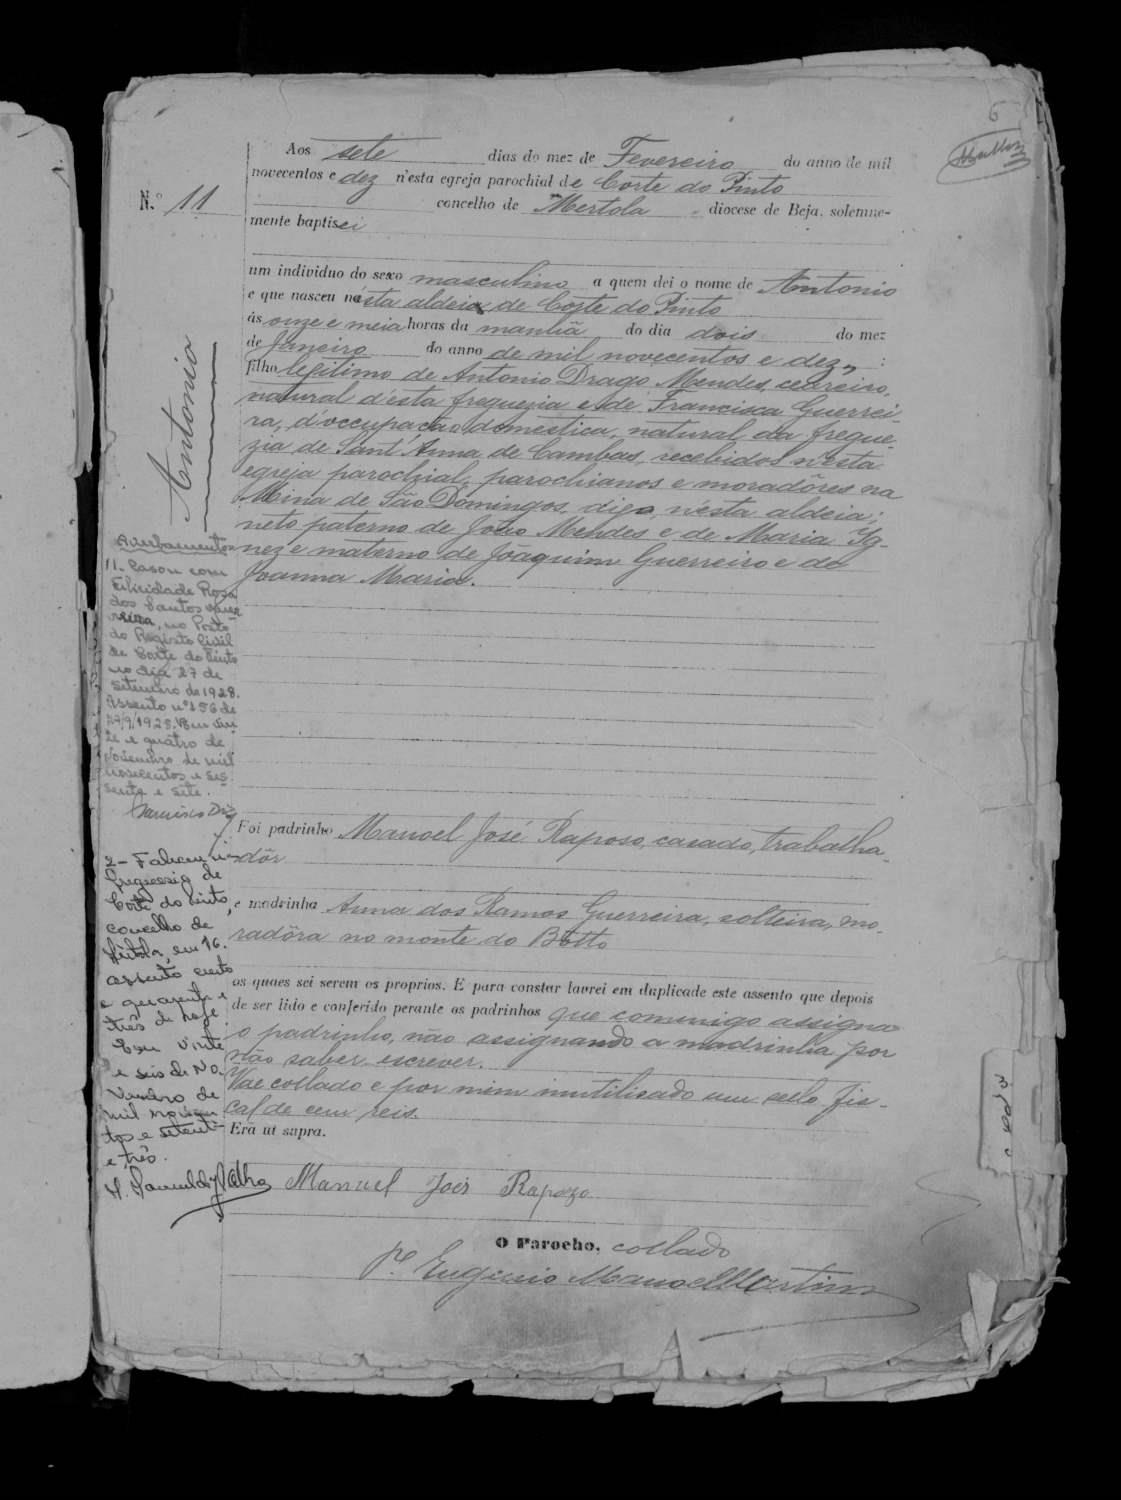 6
Aos sete dias do mez de Fevereiro do anno de mil
novecentos e dez n'esta egreja parochial de Corte do Pinto
N.º 11
concelho de Mertola diocese de Beja, solemne-
mente baptisei
um individuo do sexo masculino a quem dei o nome de Antonio
e que nasceu nésta aldeia de Côrte do Pinto
ás onze e meia horas da manhã do dia dois do mez
de Janeiro do anno de mil novecentos e dez,, :
filho legitimo de Antonio Drago Mendes, ceareiro,
natural d'ésta freguezia e de Francisca Guerrei-
ra, d'occupação domestica, natural da fregue-
zia de Sant'Anna de Cambas, recebidos n'ésta
egreja parochial, parochianos e moradôres na
Mina de São Domingos, digo, n'ésta aldeia;
neto paterno de João Mendes e de Maria Ig-
nez e materno de Joaquim Guerreiro e de
Joanna Maria.
Antonio
Averbamentos
1- Casou com
Felicidade Rosa
dos Santos Guer
reira, no Posto
do Registo Civil
de Corte do Pinto
no dia 27 de
Setembro de 1928.
Assento nº 156 de
27/9/1928. Em vin-
te e quatro de
Novembro de mil
novecentos e ses-
senta e sete.
Foi padrinho Manoel José Raposo, casado, trabalha-
dôr
e madrinha Anna dos Ramos Guerreira, solteira, mo-
radôra no monte do Bôtto
2- Faleceu na
freguesia de
Corte do Pinto,
concelho de
Mértola, em 16.
assento cento
e quarenta e
três de hoje.
Em vinte
e seis de No-
vembro de
mil novecen
tos e setenta
e três.
os quaes sei serem os proprios. E para constar lavrei em duplicade este assento que depois
de ser lido e conferido perante os padrinhos que commigo assigna
o padrinho, não assignando a madrinha por
não saber escrever.
Vae collado e por mim inutilisado um sello fis-
cal de cem reis.
Era ut supra.
Manuel José Rapozo
O Parocho, collado
P.e Eugenio Manoel Martins